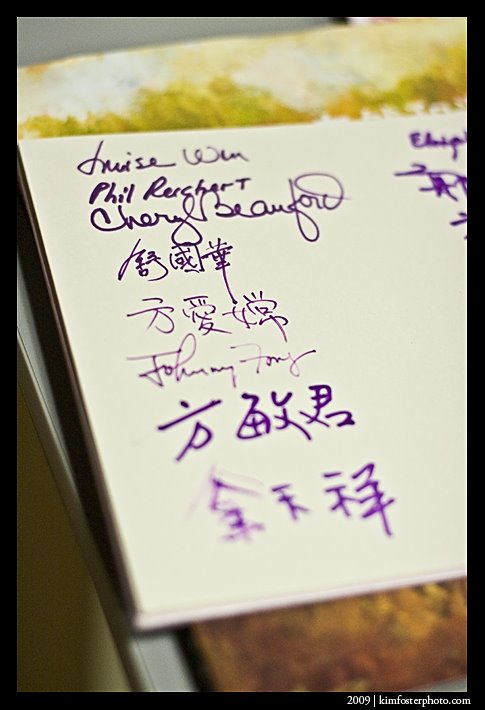 Luise Wun
Phil Reichert
Cheryl Beauford
舒國華
方愛嫦
Johnny Fong
方敏君
余天祥
2009 | kimfosterphoto.com